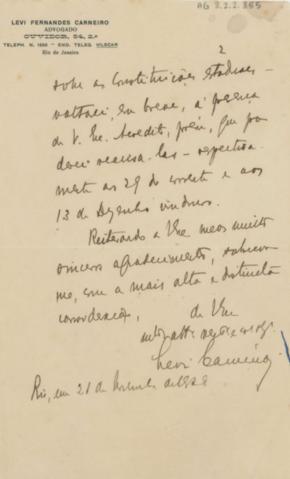 AG 3.2.2.365
LEVI FERNANDES CARNEIRO
ADVOGADO
OUVIDOR, 54, 2.º
TELEPH. N. 1856 - END. TELEG. VILECAR
Rio de Janeiro
2
sobre as Constituições estadoaes -
voltarei, em breve, á presença
de V. Ex. Acredito, porém, que po-
derei realisa-las - respectiva-
mente as 29 do corrente e aos
13 de Dezembro vindouro.
Reiterando a V Ex meus muito
sinceros agradecimentos, subscrevo
me, com a mais alta e distincta
consideração,
de V Ex
Levi Carneiro
Rio, em 21 de Novembro de